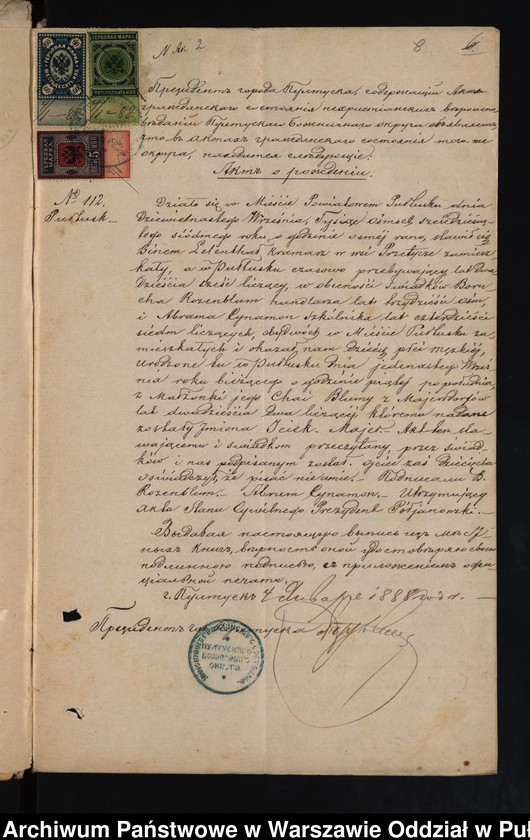 N Ак 2
8
Президентъ города Пултуска, содержащій Акты
гражданскаго состоянія нехристіанскихъ вѣроиспо-
вѣданій Пултускаго Божничнаго округа объявляетъ
что въ актахъ гражданскаго состоянія того же
округа, находится слѣдующее:
Актъ о рожденіи.
№ 112.
Pułtusk.
Działo się w Mieście Powiatowem Pułtusku dnia
dziewiętnastego Września, Tysiąc ośmset sześćdziesią-
tego siódmego roku, o godzinie osmej rano, stawił się
Binem Kramarz w wsi Przetycz zamiesz-
kały, a w Pułtusku czasowo przebywający lat dwa-
dzieścia sześć liczący, w obecności świadków Boru-
cha Rozenblum handlarza lat trzydzieści ośm,
i Abrama Cynamon Szkólnika lat czterdzieści
siedm liczących, obydwóch w Mieście Pułtusku za-
mieszkałych i okazał nam dziecię płci męzkiej,
urodzone tu w Pułtusku dnia jedenastego Wrze-
śnia roku bieżącego o godzinie piątej popołudniu,
z Małżonki jego Chai Blumy z Majerdorfów
lat dwadzieścia dwa liczącej, któremu nadane
zostały imiona Icek-Majer. Akt ten sta-
wającemu i świadkom przeczytany przez świad-
ków i nas podpisanym został. Ojciec zaś dziecięcia
oświadczył, że pisać nieumie. – Podpisali B.
Rozenblum. – Abram Cynamon. – Utrzymujący
Akta Stanu Cywilnego Prezydent Połjanowski. –
Выдавая настоящую выпись изъ
ныхъ книгъ, вѣрность оной удостовѣряю свое
подлинною подписью, съ приложеніемъ офи-
ціальной печати.
г. Пултускъ 4 Января 1888 года. –
Президентъ города Пултуска
Archiwum Państwowe w Warszawie Oddział w Puł